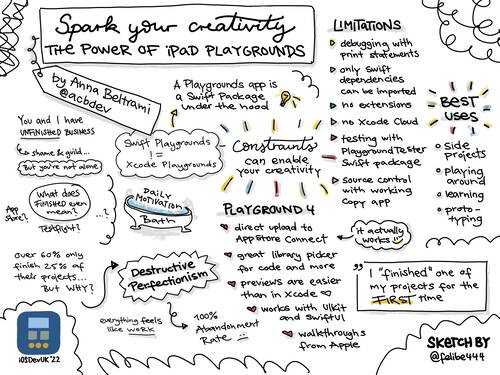 Spark your creativity
THE POWER OF iPAD PLAYGROUNDS
by Anna Beltrami
@acbdev
You and I have
UNFINISHED BUSINESS
shame & guilt...
But you're not alone
What does
FINISHED even
mean?
App
Store?
Testflight?
...?
Over 60% only
finish 25% of
their projects...
BUT WHY?
iOSDevUK '22
A Playgrounds app is
a Swift Package
under the hood
Swift Playgrounds
!=
Xcode Playgrounds
DAILY
MOTIVATION
Bath
Destructive
Perfectionism
everything feels
like WORK
100%
Abandonment
Rate
Constraints
can enable
your creativity
PLAYGROUND 4
direct upload to
AppStore Connect
great library picker
for code and more
previews are easier
than in Xcode
works with UIkit
and SwiftUI
walkthroughs
from Apple
it actually
works
LIMITATIONS
debugging with
print statements
only Swift
dependencies
can be imported
no extensions
no Xcode Cloud
testing with
PlaygroundTester
Swift package
source control
with working
copy app
BEST
USES
side
projects
playing
around
learning
proto-
typing
I "finished" one of
my projects for the
FIRST time
SKETCH BY
@falibe444